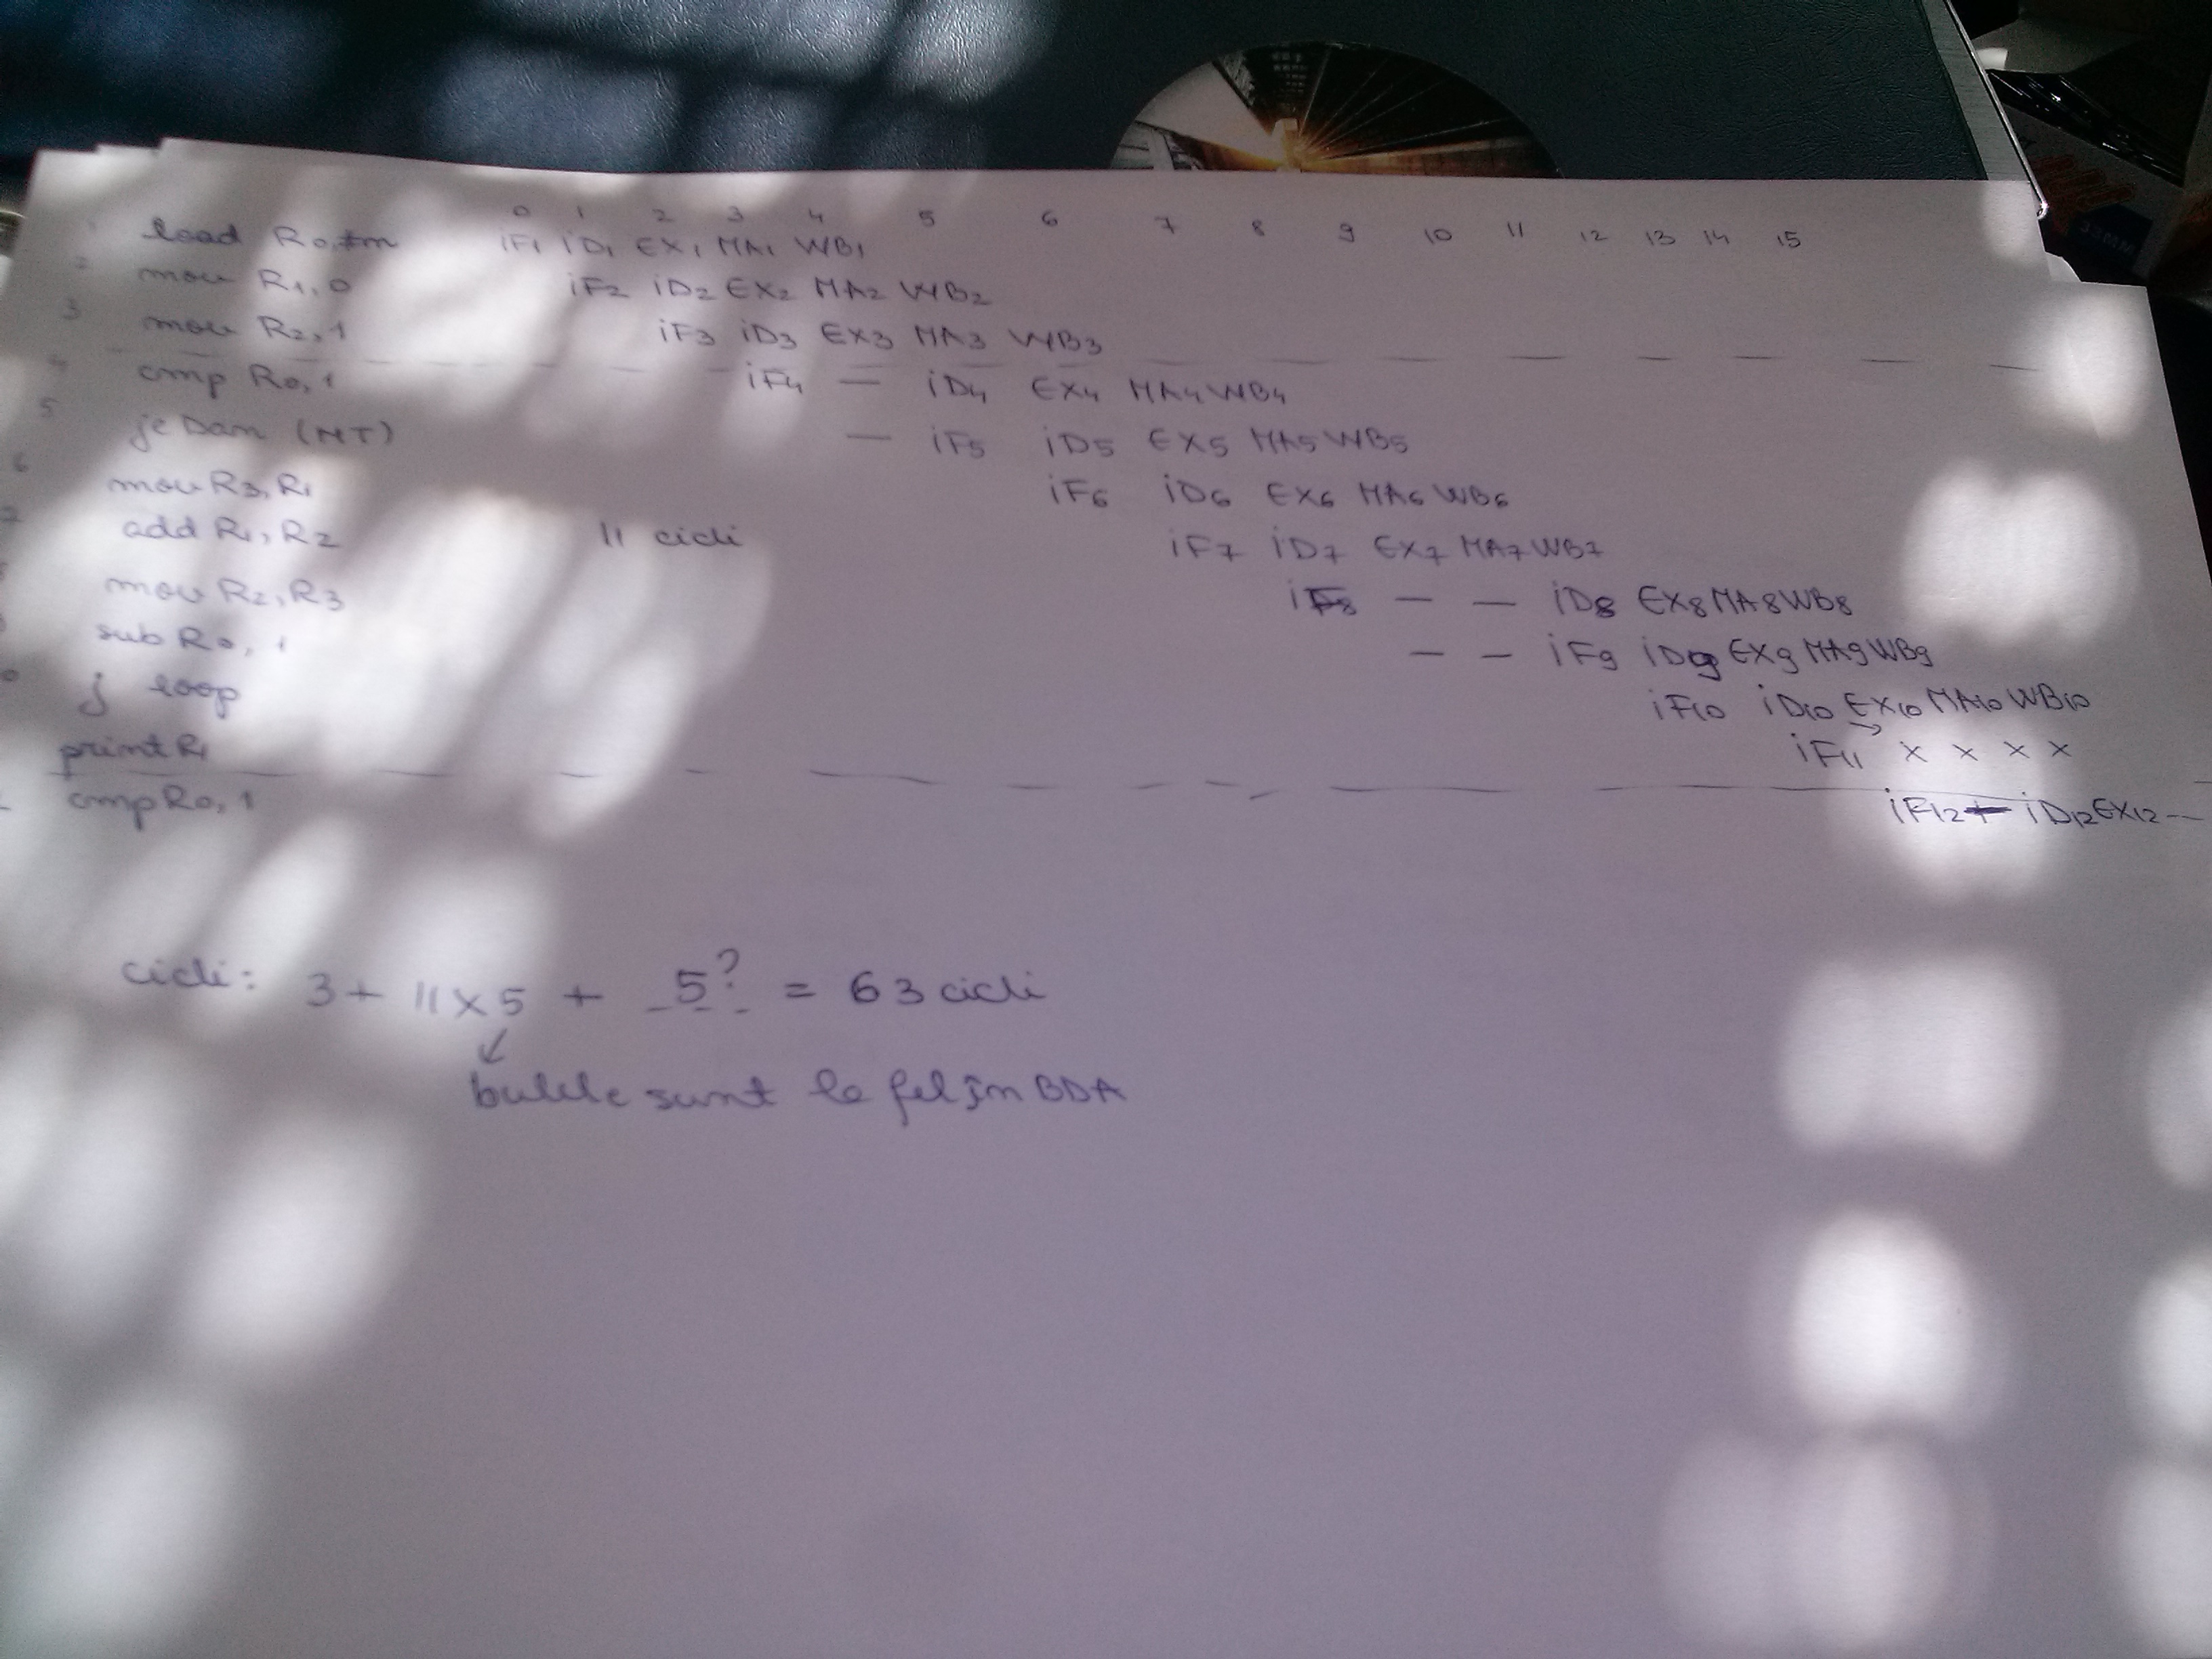 0 1 2 3 4 5 6 7 8 9 10 11 12 13 14 15
1 load R0, m IF1 ID1 EX1 MA1 WB1
2 mov R1, 0 IF2 ID2 EX2 MA2 WB2
3 mov R2, 1 IF3 ID3 EX3 MA3 WB3
4 cmp R0, 1 IF4 — ID4 EX4 MA4 WB4
5 je Dan (NT) — IF5 ID5 EX5 MA5 WB5
6 mov R3, R1 IF6 ID6 EX6 MA6 WB6
7 add R1, R2 11 cicli IF7 ID7 EX7 MA7 WB7
mov R2, R3 IF8 — — ID8 EX8 MA8 WB8
sub R0, 1 — — IF9 ID9 EX9 MA9 WB9
j loop IF10 ID10 EX10 MA10 WB10
print R1 IF11 x x x x
cmp R0, 1 IF12 ID12 EX12 --
cicli: 3 + 11 x 5 + 5? = 63 cicli
bulele sunt la fel în BDA